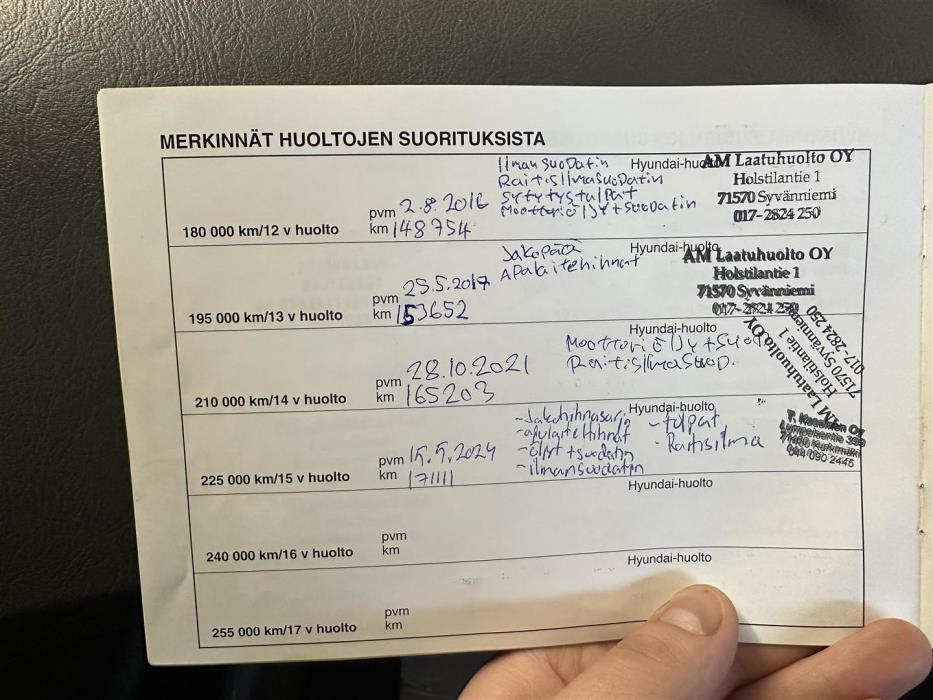 MERKINNÄT HUOLTOJEN SUORITUKSISTA
Ilmansuodatin
Raitisilmasuodatin
Sytytystulpat
Moottoriöljy + suodatin
Hyundai-huolto
AM Laatuhuolto OY
Holstilantie 1
71570 Syvänniemi
017-2824 250
180 000 km/12 v huolto
pvm 2.8.2016
km 148754
Jakopää
Apulaitehihnat
Hyundai-huolto
AM Laatuhuolto OY
Holstilantie 1
71570 Syvänniemi
017-2824 250
195 000 km/13 v huolto
pvm 25.5.2017
km 153652
Hyundai-huolto
Moottoriöljy + suod
Raitisilmasuod.
AM Laatuhuolto OY
Holstilantie 1
71570 Syvänniemi
017-2824 250
210 000 km/14 v huolto
pvm 28.10.2021
km 165203
Hyundai-huolto
-Jakohihnasarja
-apulaitehihnat
-öljyt + suodatin
-ilmansuodatin
-tulpat
-Raitisilma
044 090 2445
225 000 km/15 v huolto
pvm 15.5.2024
km 171111
Hyundai-huolto
240 000 km/16 v huolto
pvm
km
Hyundai-huolto
255 000 km/17 v huolto
pvm
km